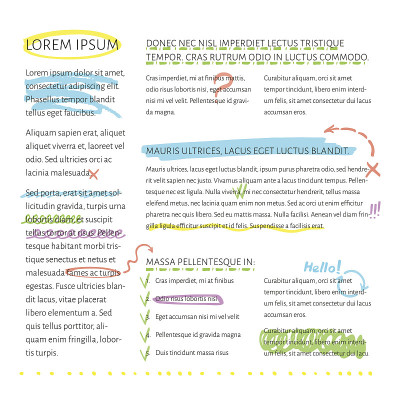 LOREM IPSUM
Lorem ipsum dolor sit amet,
consectetur adipiscing elit.
Phasellus tempor blandit
tellus eget faucibus.
Aliquam sapien erat, aliquet
aliquet viverra et, laoreet vel
odio. Sed ultricies orci ac
lacinia malesuada.
Sed porta, erat sit amet sol-
licitudin gravida, turpis urna
lobortis diam, et suscipit
tellus tortor at risus. Pellen-
tesque habitant morbi tris-
tique senectus et netus et
malesuada fames ac turpis
egestas. Fusce ultricies blan-
dit lacus, vitae placerat
libero elementum a. Sed
quis tellus porttitor, ali-
quam enim fringilla, lobor-
tis turpis.
DONEC NEC NISL IMPERDIET LECTUS TRISTIQUE
TEMPOR. CRAS RUTRUM ODIO IN LUCTUS COMMODO.
Cras imperdiet, mi at finibus mattis,
odio risus lobortis nisi, eget accumsan
nisi mi vel velit. Pellentesque id gravi-
da magna.
?
Curabitur aliquam, orci sit amet
tempor tincidunt, libero enim interd-
um felis, sit amet consectetur dui lacus
accumsan eros.
MAURIS ULTRICES, LACUS EGET LUCTUS BLANDIT.
Mauris ultricies, lacus eget luctus blandit, ipsum purus pharetra odio, sed hendre-
rit velit sapien nec justo. Vivamus aliquam ante a lacus tincidunt tempus. Pellen-
tesque nec est ligula. Nulla vivamus, nisl in tempor hendrerit, tellus massa
eleifend metus, nec lacinia quam enim non metus. Sed ac orci ut enim efficitur
pharetra nec quis libero. Sed eu mattis massa. Nulla facilisi. Aenean vel diam frin-
gilla ligula efficitur suscipit et id felis. Suspendisse a facilisis erat.
!!!
MASSA PELLENTESQUE IN:
1. Cras imperdiet, mi at finibus
2. Odio risus lobortis nisi
3. Eget accumsan nisi mi vel velit
4. Pellentesque id gravida magna
5. Duis tincidunt massa risus
Hello!
Curabitur aliquam, orci sit amet
tempor tincidunt, libero enim interd-
um felis, sit amet consectetur dui lacus
accumsan eros.
Curabitur aliquam, orci sit amet
tempor tincidunt, libero enim interd-
um felis, sit amet consectetur dui lacu